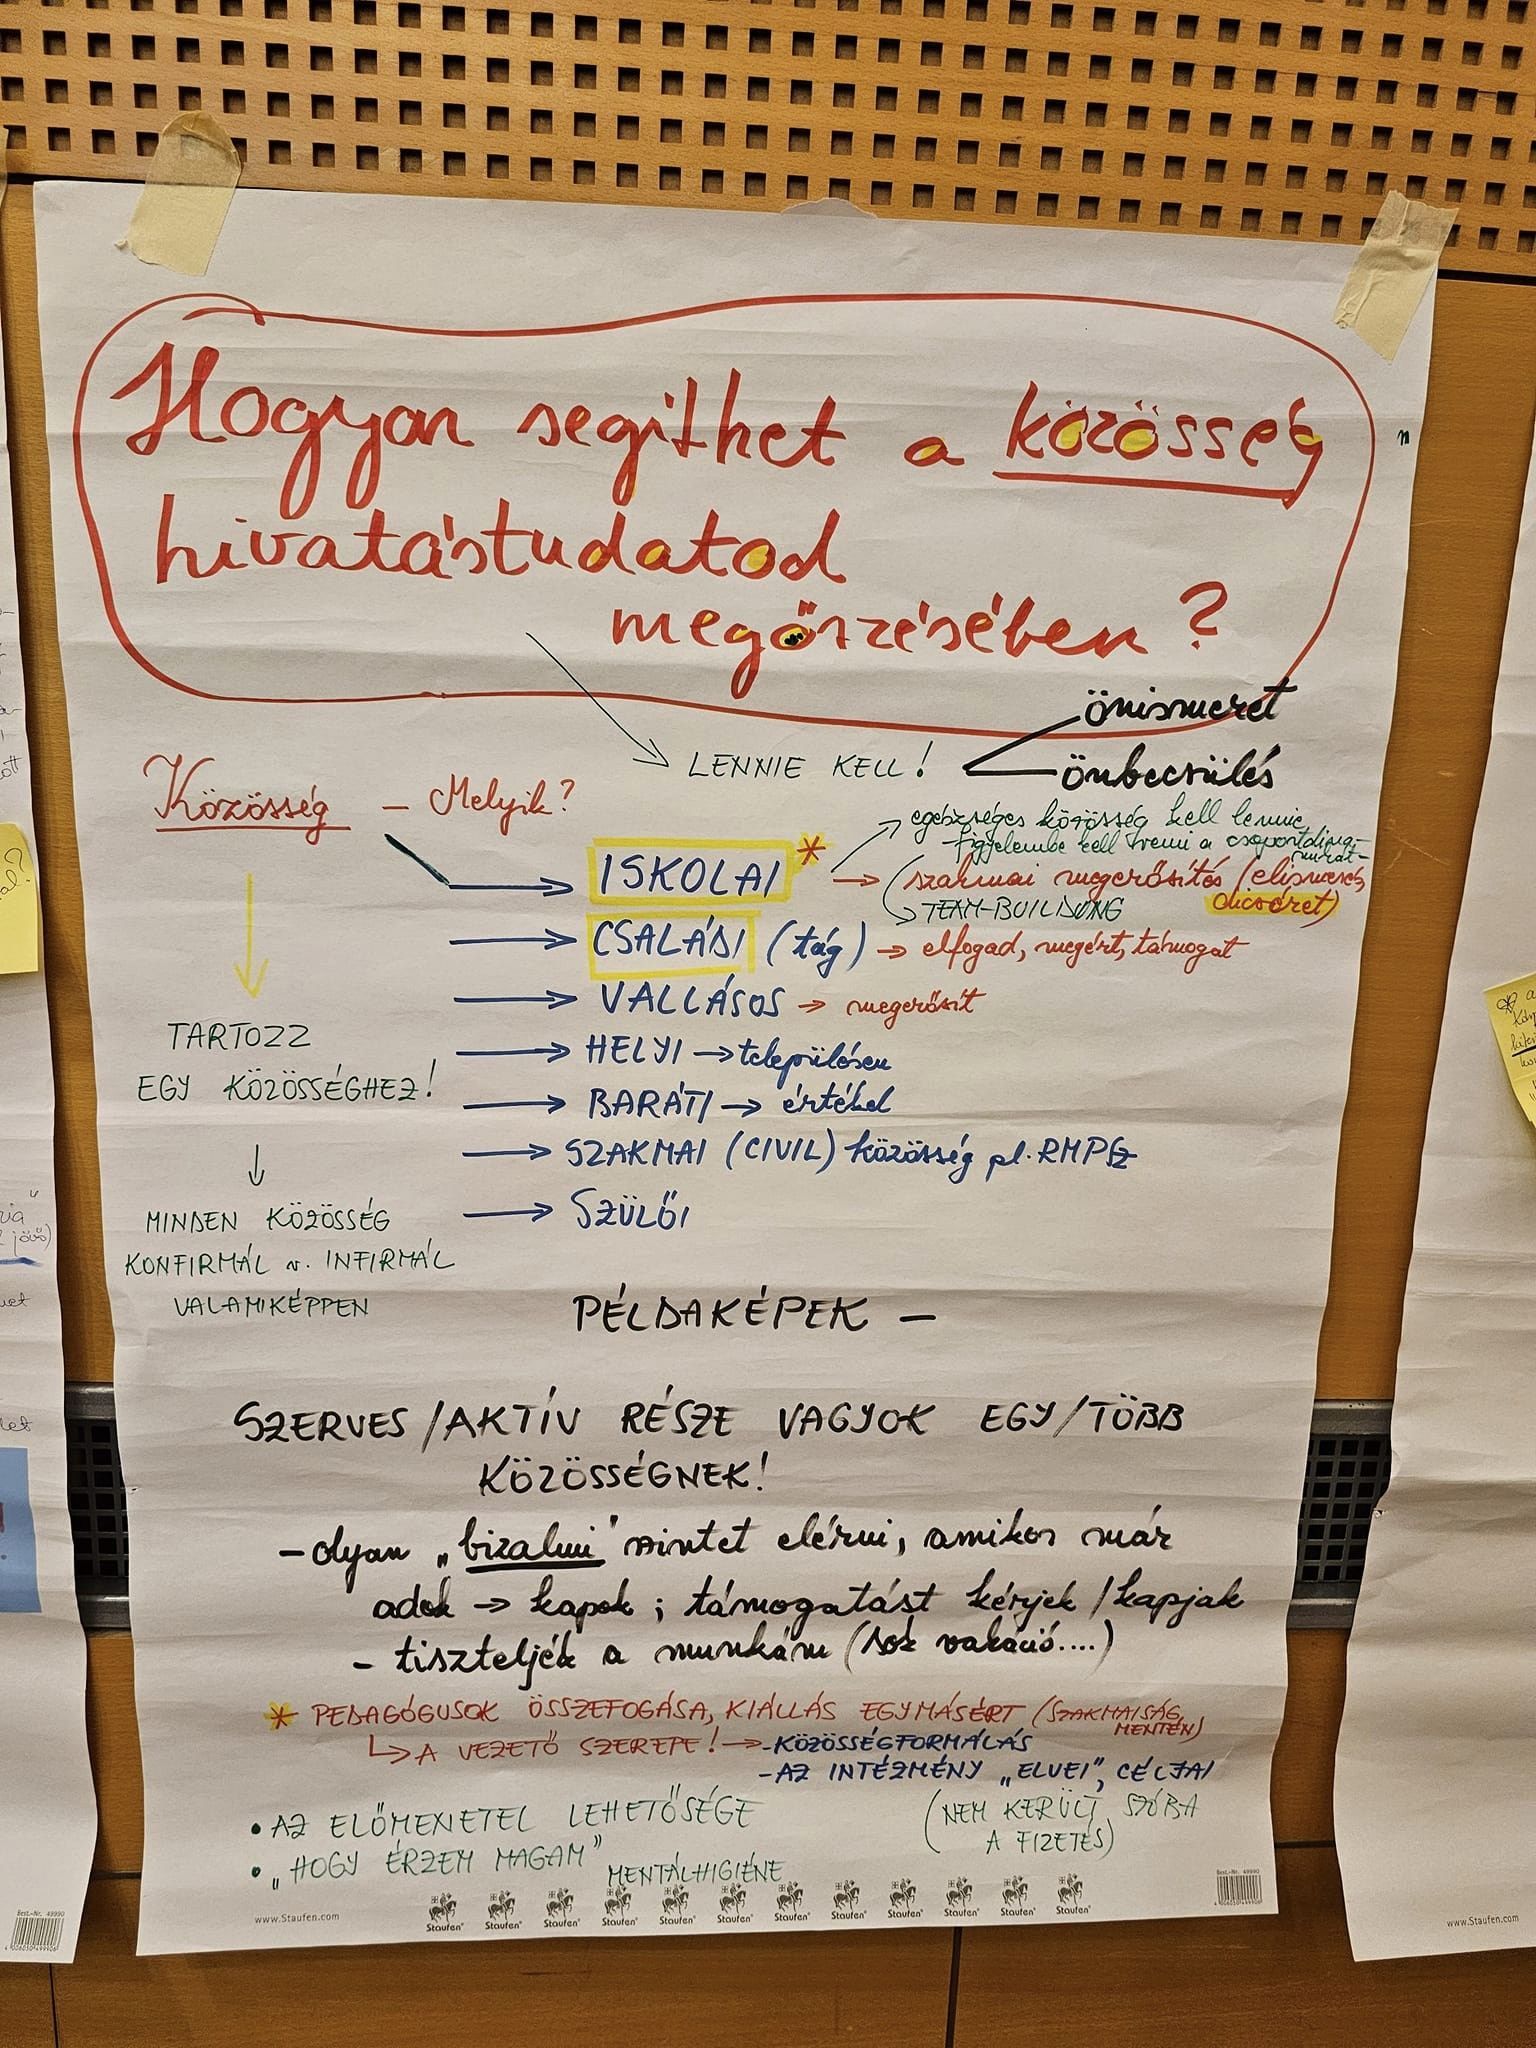 Hogyan segithet a közösség
hivatástudatod
megőrzésében?
önismeret
LENNIE KELL!
önbecsülés
Közösség - Melyik?
egészséges közösség kell lennie
figyelembe kell venni a csoportdina-
mikát
ISKOLAI *
→ szakmai megerősítés (elismerés,
dicséret)
TEAM-BUILDUNG
CSALÁDI (tág) → elfogad, megért, támogat
VALLÁSOS → megerősít
TARTOZZ
EGY KÖZÖSSÉGHEZ!
HELYI → településen
BARÁTI → értékel
SZAKMAI (CIVIL) közösség pl. RMPSz
SZÜLŐI
MINDEN KÖZÖSSÉG
KONFIRMÁL v. INFIRMÁL
VALAMIKÉPPEN
PÉLDAKÉPEK -
SZERVES/AKTÍV RÉSZE VAGYOK EGY/TÖBB
KÖZÖSSÉGNEK!
- olyan „bizalmi" szintet elérni, amikor már
adok → kapok; támogatást kérjek/kapjak
- tiszteljék a munkám (sok vakáció....)
* PEDAGÓGUSOK ÖSSZEFOGÁSA, KIÁLLÁS EGYMÁSÉRT (SZAKMAISÁG
MENTÉN)
↳ A VEZETŐ SZEREPE! → - KÖZÖSSÉGFORMÁLÁS
- AZ INTÉZMÉNY „ELVEI", CÉLJAI
• AZ ELŐMENETEL LEHETŐSÉGE
(NEM KERÜLT SZÓBA
A FIZETÉS)
• „HOGY ÉRZEM MAGAM"
MENTÁLHIGIÉNE
www.Staufen.com
Staufen Staufen Staufen Staufen Staufen Staufen Staufen Staufen Staufen Staufen Staufen Staufen
Best.-Nr. 49990
Best.-Nr. 49990
www.Staufen.com